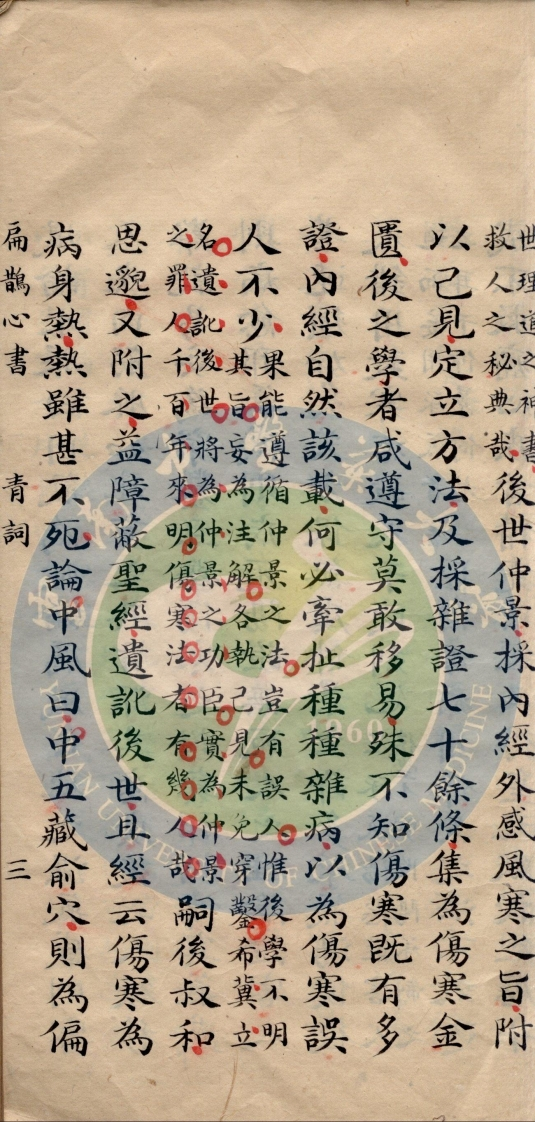 世理道之補書
救人之秘典哉
後世仲景採內經外感風寒之旨附
以己見定立方法及採雜證七十餘條集為傷寒金
匱後之學者咸遵守莫敢移易殊不知傷寒既有多
證內經自然該載何必牽扯種種雜病以為傷寒誤
人不少
果能遵循仲景之法豈有誤人惟後學不明
其旨妄為注解各執己見未免穿鑿希冀立
名遺訛後世將為仲景之功臣實為仲景
之罪人千百年來明傷寒法者有幾人哉
嗣後叔和
思邈又附之益障蔽聖經遺訛後世且經云傷寒為
病身熱熱雖甚不死論中風曰中五藏俞穴則為偏
扁鵲心書 青詞 三
1960
YUNNAN UNIVERSITY OF CHINESE MEDICINE